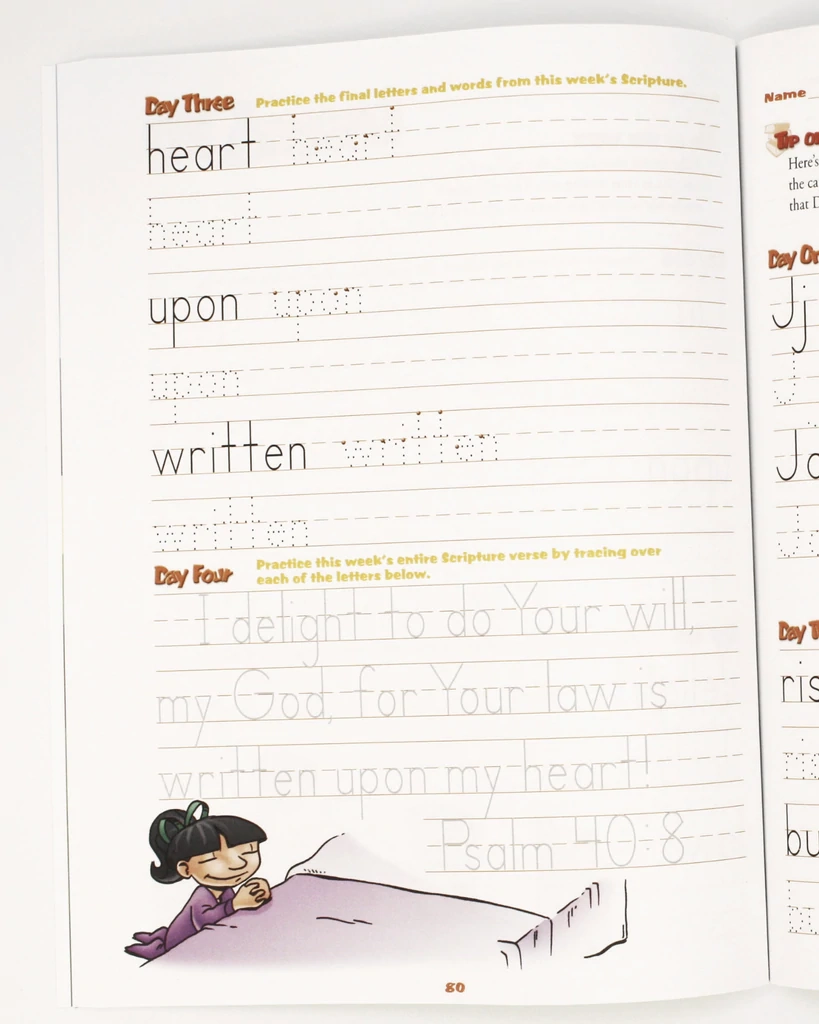 Day Three Practice the final letters and words from this week's Scripture.
heart heart
heart
upon upon
upon
written written
written
Day Four Practice this week's entire Scripture verse by tracing over
each of the letters below.
I delight to do Your will,
my God, for Your law is
written upon my heart!
Psalm 40:8
80
Name
Here's
the
that
Jj
J